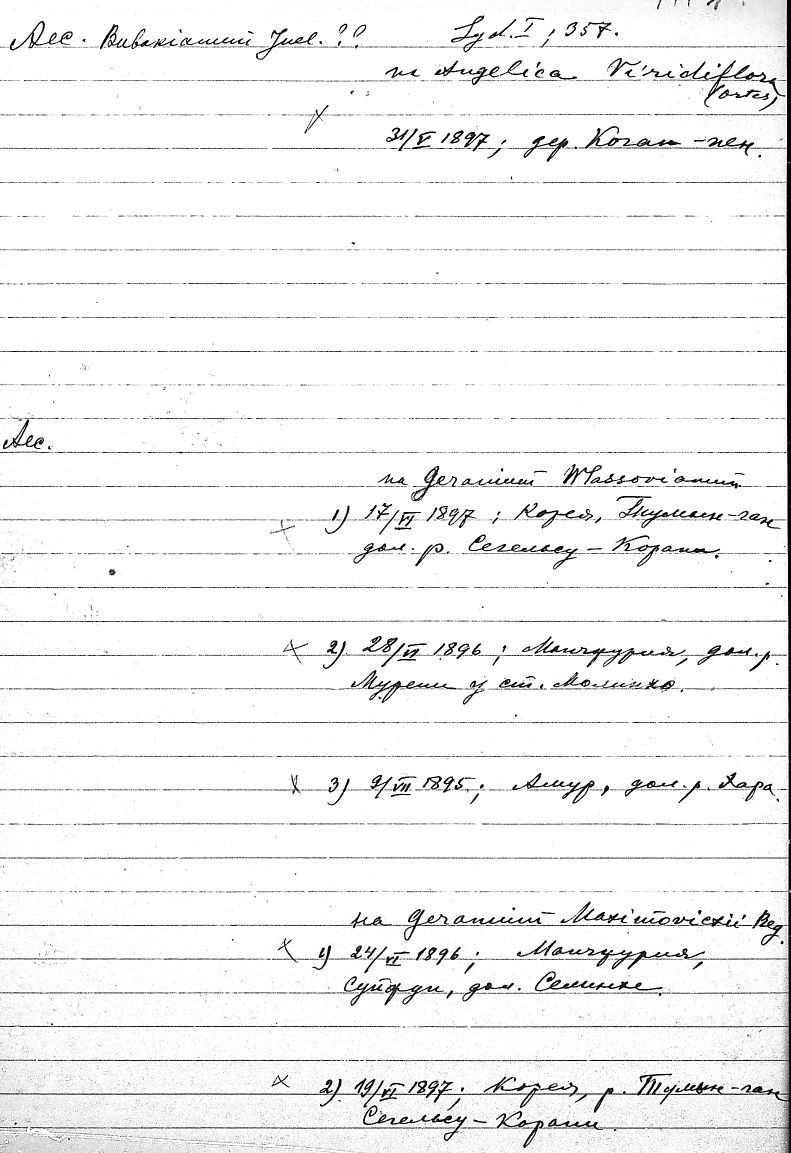 Aec. Bubakianum Juel. ?? Syd. I ; 357.
на Angelica Viridiflora
31/V 1897 ; дер. Коган-пен.
Aec.
на Geranium Wlassovianum
1) 17/VI 1897 ; Корея, Тумын-ган
дол. р. Сегельсу – Корани.
2) 28/VI 1896 ; Манчжурия, дол. р.
Мурени у ст. Молинхэ.
3) 9/VII 1895 ; Амур, дол. р. Хара.
на Geranium Maximoviczii Reg.
1) 24/VI 1896 ; Манчжурия,
Суйфун, дол. Селинхе.
2) 19/VI 1897 ; Корея, р. Тумын-ган
Сегельсу – Корани.